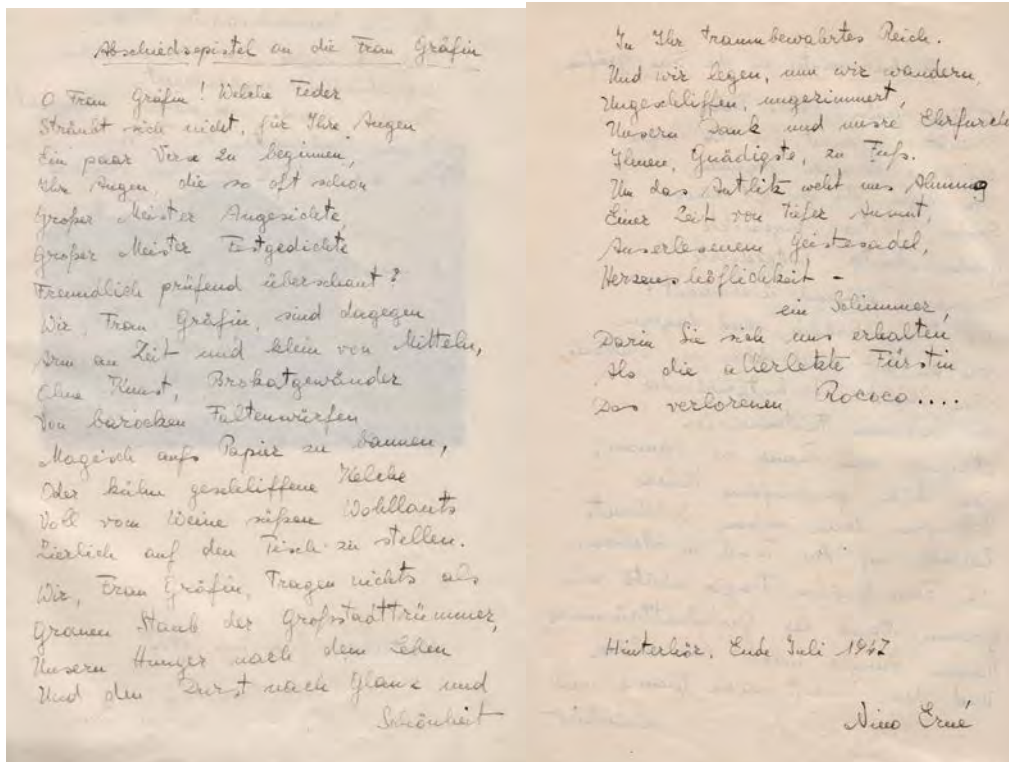 Abschiedsepistel an die Frau Gräfin
O Frau Gräfin! Welche Feder
Sträubt sich nicht, für Ihre Augen
Ein paar Verse zu beginnen,
Ihre Augen, die so oft schon
Großer Meister Angesichte,
Großer Meister Festgedichte
Freundlich prüfend überschaut?
Wir, Frau Gräfin, sind dagegen
Arm an Zeit und klein von Mitteln,
Ohne Kunst, Brokatgewänder
Von barocken Faltenwürfen
Magisch aufs Papier zu bannen,
Oder kühn geschliffene Kelche
Voll vom Weine süßen Wohllauts
Zierlich auf den Tisch zu stellen.
Wir, Frau Gräfin, tragen nichts als
Grauen Staub der Großstadttrümmer,
Unsern Hunger nach dem Leben
Und den Durst nach Glanz und
Schönheit
In Ihr traumbewahrtes Reich.
Und wir legen, nun wir wandern,
Ungeschliffen, ungezimmert,
Unsern Dank und unsre Ehrfurcht
Ihnen, Gnädigste, zu Fuß.
Um das Antlitz weht uns Ahnung
Einer Zeit von tiefer Anmut,
Auserlesenem Geistesadel,
Herzenshöflichkeit –
ein Schimmer,
Darin Sie sich uns erhalten
Als die allerletzte Fürstin
Des verlorenen Rococo....
Hinterhör, Ende Juli 1947
Nino Erné